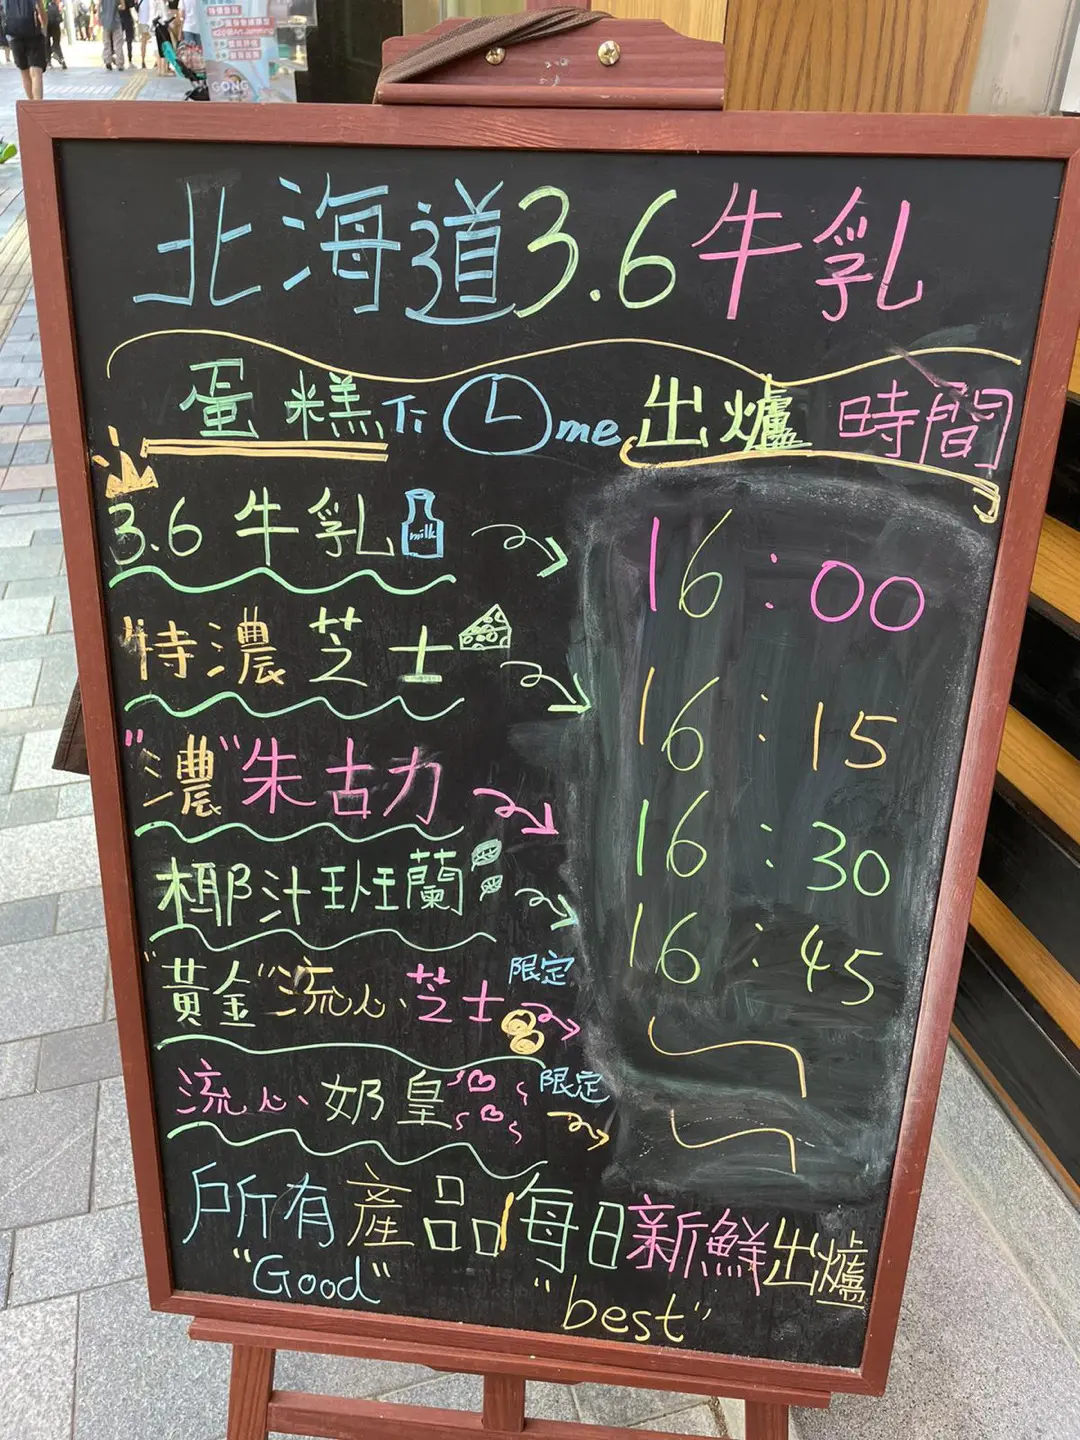 GONG
北海道3.6牛乳
蛋糕 Time 出爐時間
3.6牛乳 milk 16:00
"特濃芝士 16:15
"濃"朱古力 16:30
椰汁班蘭 16:45
"黃金"流心芝士 限定
流心奶皇 限定
所有產品每日新鮮出爐
"Good"
"best"